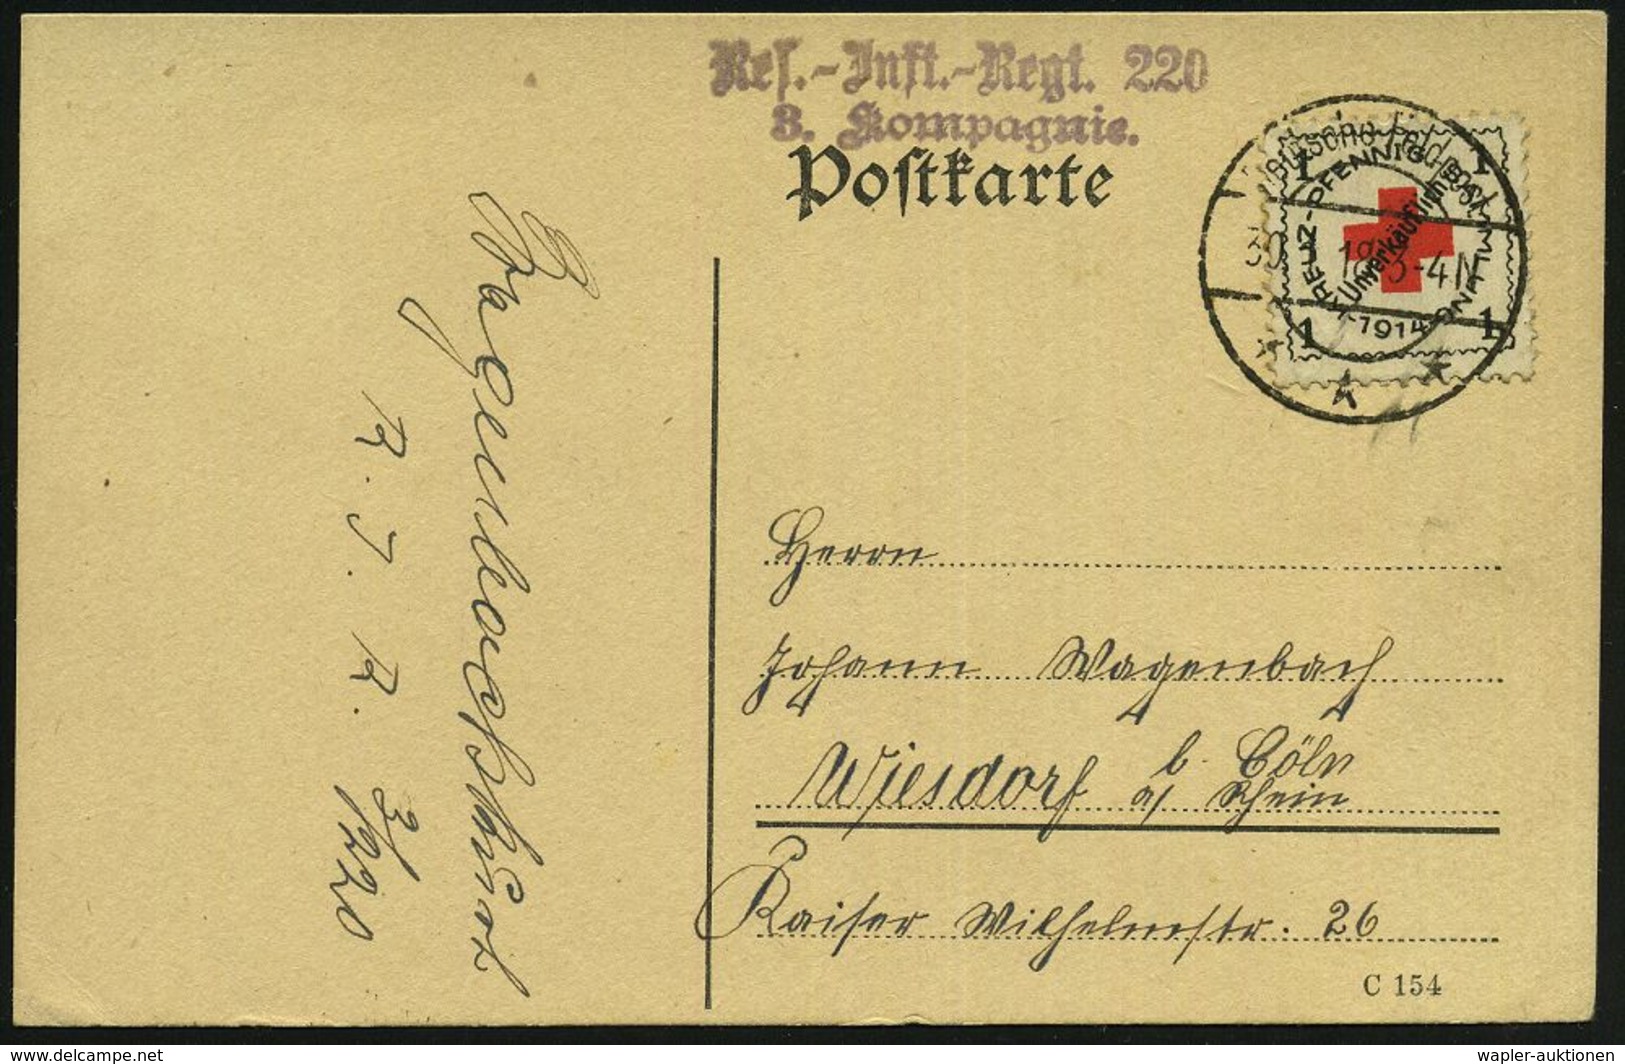 Res.-Inft.-Regt. 220
3. Kompagnie.
Postkarte
Deutsche Feldpost
18 3-4N
1 1
KREUZ-PFENNIG SAMMLUNG
Unverkäuflich
1914
1 1
Wagenbach
R. I. R.
3/220
Herrn
Johann Wagenbach
Wiesdorf b. Cöln
a/ Rhein
Kaiser Wilhelmstr. 26
C 154
www.delcampe.net
wapler-auktionen